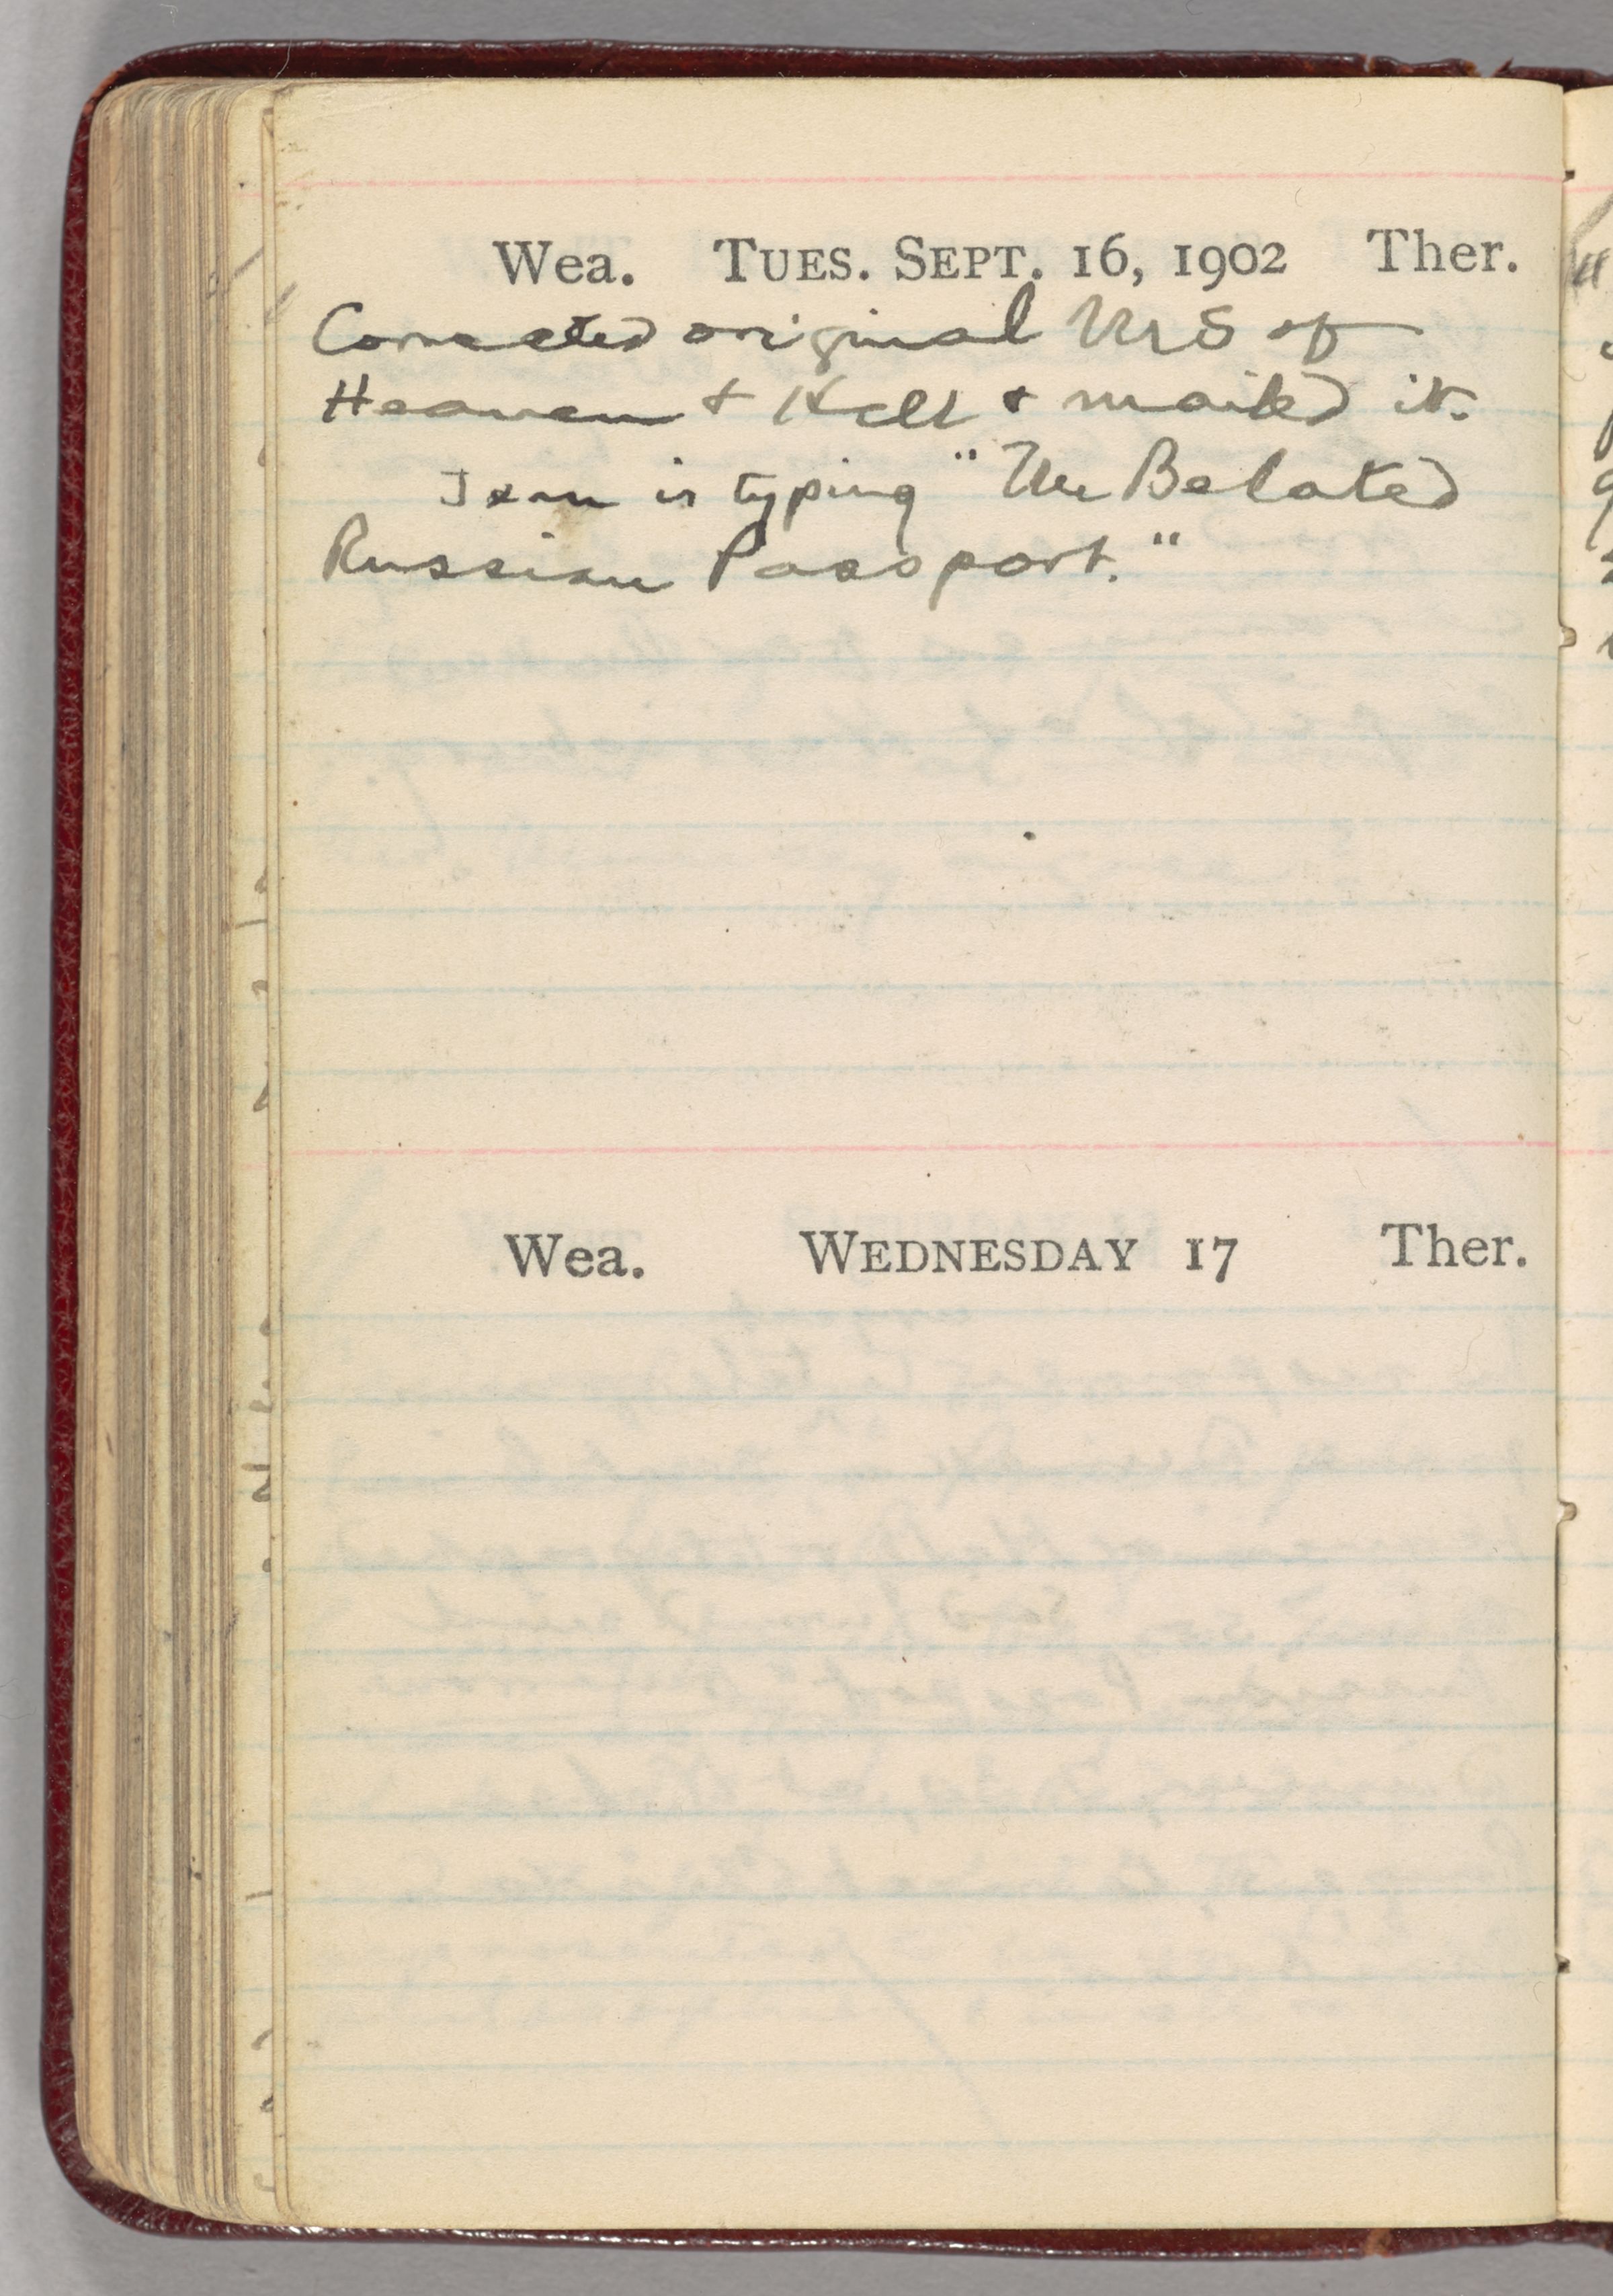 Wea. TUES. SEPT. 16, 1902 Ther.
Corrected original MS of
Heaven + Hell + mailed it.
Jean is typing "The Belated
Russian Passport."
Wea. WEDNESDAY 17 Ther.